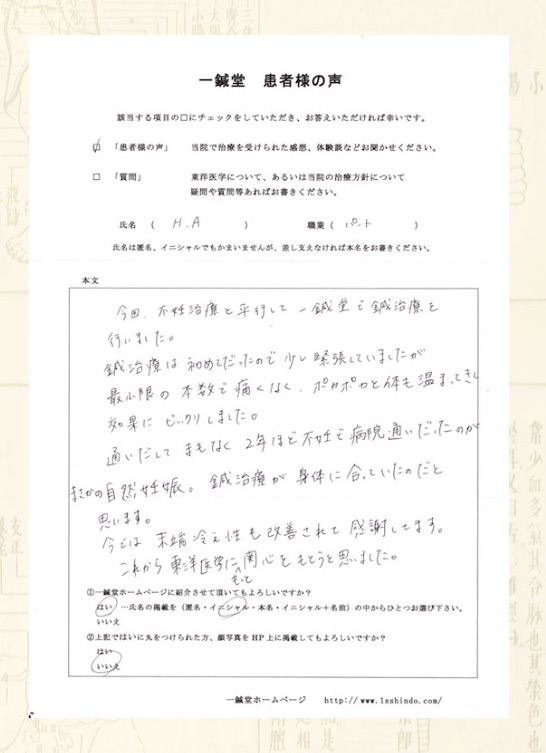 一鍼堂 患者様の声
該当する項目の□にチェックをしていただき、お答えいただければ幸いです。
□ 「患者様の声」 当院で治療を受けられた感想、体験談などお聞かせください。
□ 「質問」 東洋医学について、あるいは当院の治療方針について
疑問や質問等あればお書きください。
氏名 ( H.A ) 職業 ( パート )
氏名は匿名、イニシャルでもかまいませんが、差し支えなければ本名をお書きください。
本文
今回、不妊治療と平行して一鍼堂で鍼治療を
行いました。
鍼治療は初めてだったので少し緊張していましたが
最小限の本数で痛くなく、ポカポカと体も温まってきて
効果にビックリしました。
通いだしてまもなく2年ほど不妊で病院通いだったのが
まさかの自然妊娠。鍼治療が身体に合っていたのだと
思います。
今では末端冷え性も改善されて感謝してます。
これから東洋医学にもっと関心をもとうと思いました。
①一鍼堂ホームページに紹介させて頂いてもよろしいですか?
はい …氏名の掲載を(匿名・イニシャル・本名・イニシャル+名前)の中からひとつお選び下さい。
いいえ
②上記ではいに丸をつけられた方、顔写真をHP上に掲載してもよろしいですか?
はい
いいえ
一鍼堂ホームページ http://www.1sshindo.com/